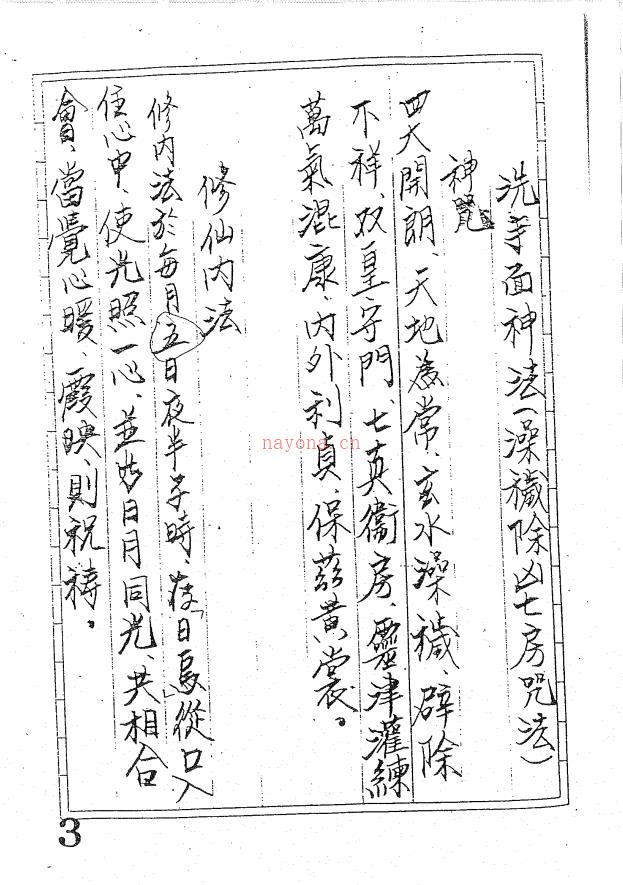 洗手面神法(澡穢除凶七房咒法)
神咒
四大開朗、天地為常、玄水澡穢、辟除
不祥、双皇守門、七真衞房、靈津灌練
萬氣混康、內外利貞、保茲黃裳。
修仙內法
修內法於每月五日夜半子時、存「日烏」從口入
住心中、使光照一心、並與日月同光、共相合
會、當覺心暖、霞映、則祝禱。
nayona.cn
3